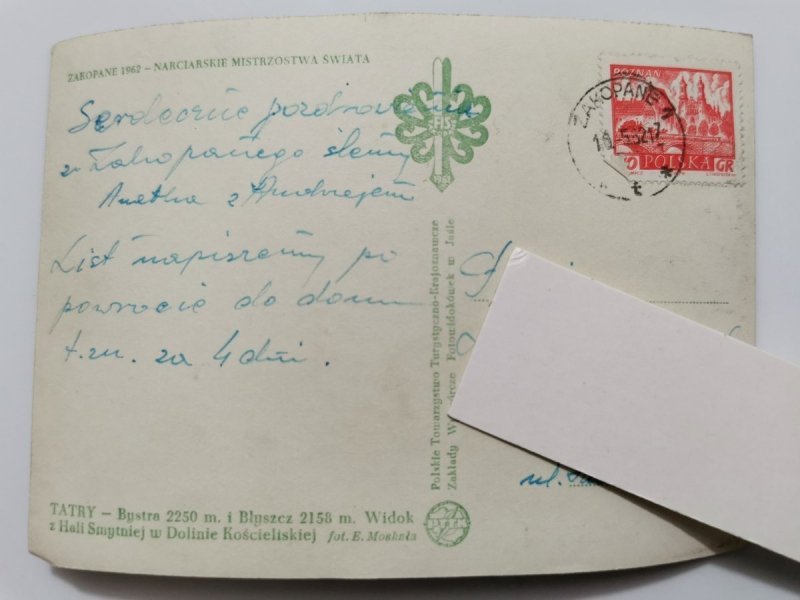 ZAKOPANE 1962 – NARCIARSKIE MISTRZOSTWA ŚWIATA
Serdeczne pozdrowienia
z Zakopanego ślemy
Anetka z Andrzejem
List napiszemy po
powrocie do domu
t.zn. za 4 dni.
FIS
1962
POZNAŃ
POLSKA
GR
ZAKOPANE 1
Polskie Towarzystwo Turystyczno-Krajoznawcze
Zakłady Fotowidokówek w Jaśle
ul.
TATRY – Bystra 2250 m. i Błyszcz 2158 m. Widok
z Hali Smytniej w Dolinie Kościeliskiej fot. E. Moskała